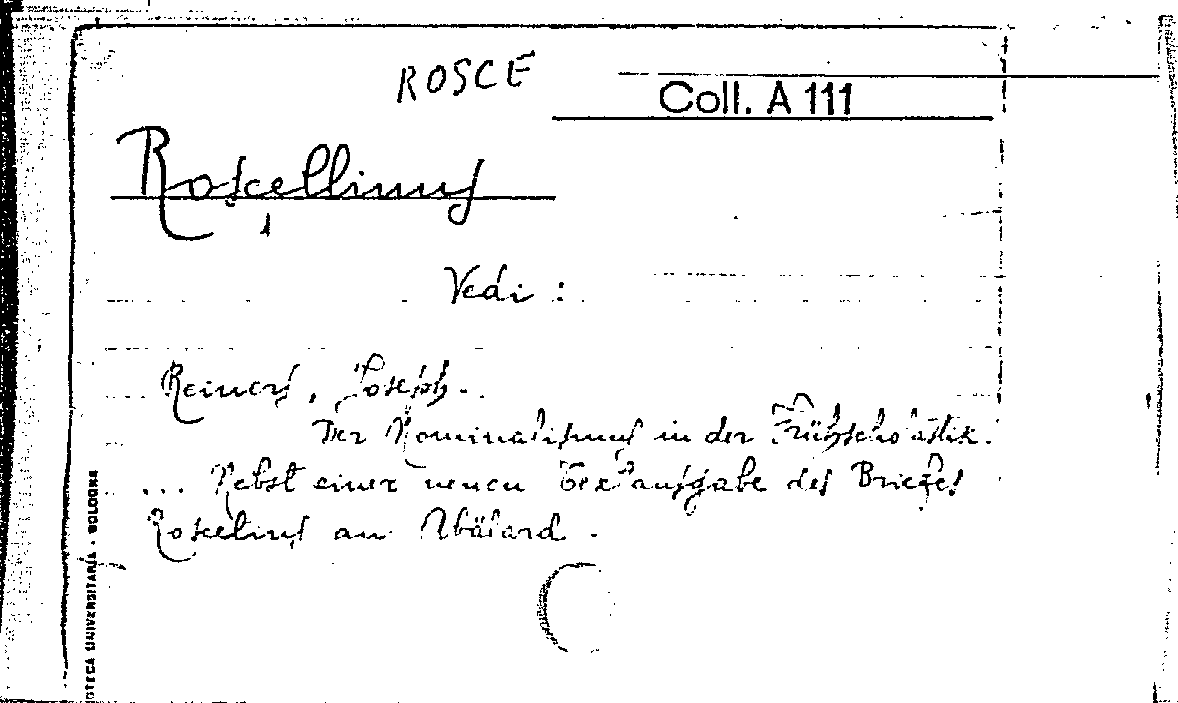 ROSCE
Coll. A 111
Roscellinus
Vedi :
Reiners, Joseph.
Der Nominalismus in der Frühscholastik.
... Nebst einer neuen Textausgabe des Briefes
Roscelins an Abälard.
OTECA UNIVERSITARIA - BOLOGNA